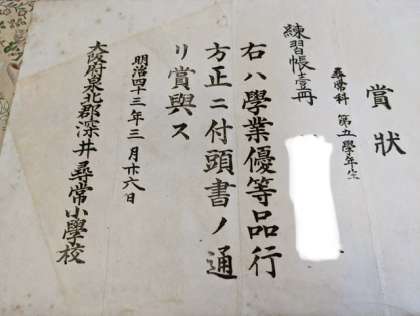 賞狀
尋常科 第五學年生
練習帳壹冊
右ハ學業優等品行
方正ニ付頭書ノ通
リ賞與ス
明治四十三年三月廿六日
大阪府泉北郡深井尋常小學校